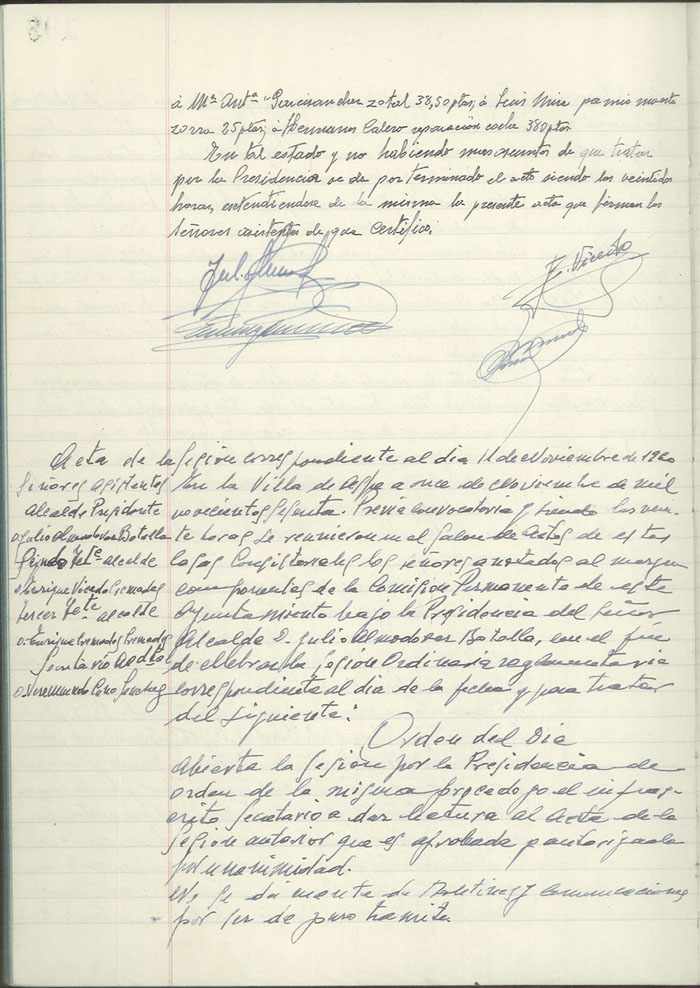 á Mª Antª Garcisanchez zotal 38,50 ptas; á Luis Mira premio muerte
zorra 25 ptas; á Hermanos Calero reparación coche 380 ptas
En tal estado y no habiendo mas asuntos de que tratar
por la Presidencia se da por terminado el acto siendo las veintidos
horas, extendiendose de la misma la presente acta que firman los
Señores asistentes de que certifico.
E. Vicedo
Acta de la Sesión correspondiente al dia 11 de Noviembre de 1960
Señores asistentes
Alcalde Presidente
D. Julio Almodovar Botella
Segundo Tte alcalde
Enrique Vicedo Gremades
Tercer Tete alcalde
D. Enrique Cremades Cremades
Secretario Acctal
D. Veremundo Cano
En la Villa de Aspe a once de Noviembre de mil
novecientos Sesenta. Previa convocatoria y siendo las vein-
te horas se reunieron en el Salon de Actos de estas
Casas Consistoriales los señores anotados al margen
componentes de la Comisión Permanente de este
Ayuntamiento bajo la Presidencia del Señor
Alcalde D. Julio Almodovar Botella, con el fin
de celebrar la Sesión Ordinaria reglamentaria
correspondiente al dia de la fecha y para tratar
del siguiente:
Orden del Dia
Abierta la Sesión por la Presidencia de
orden de la misma procedo yo el infras-
crito Secretario a dar lectura al Acta de la
Sesión anterior que es aprobada y autorizada
por unanimidad.
No se da cuenta de Boletines y Comunicaciones
por ser de puro tramite.